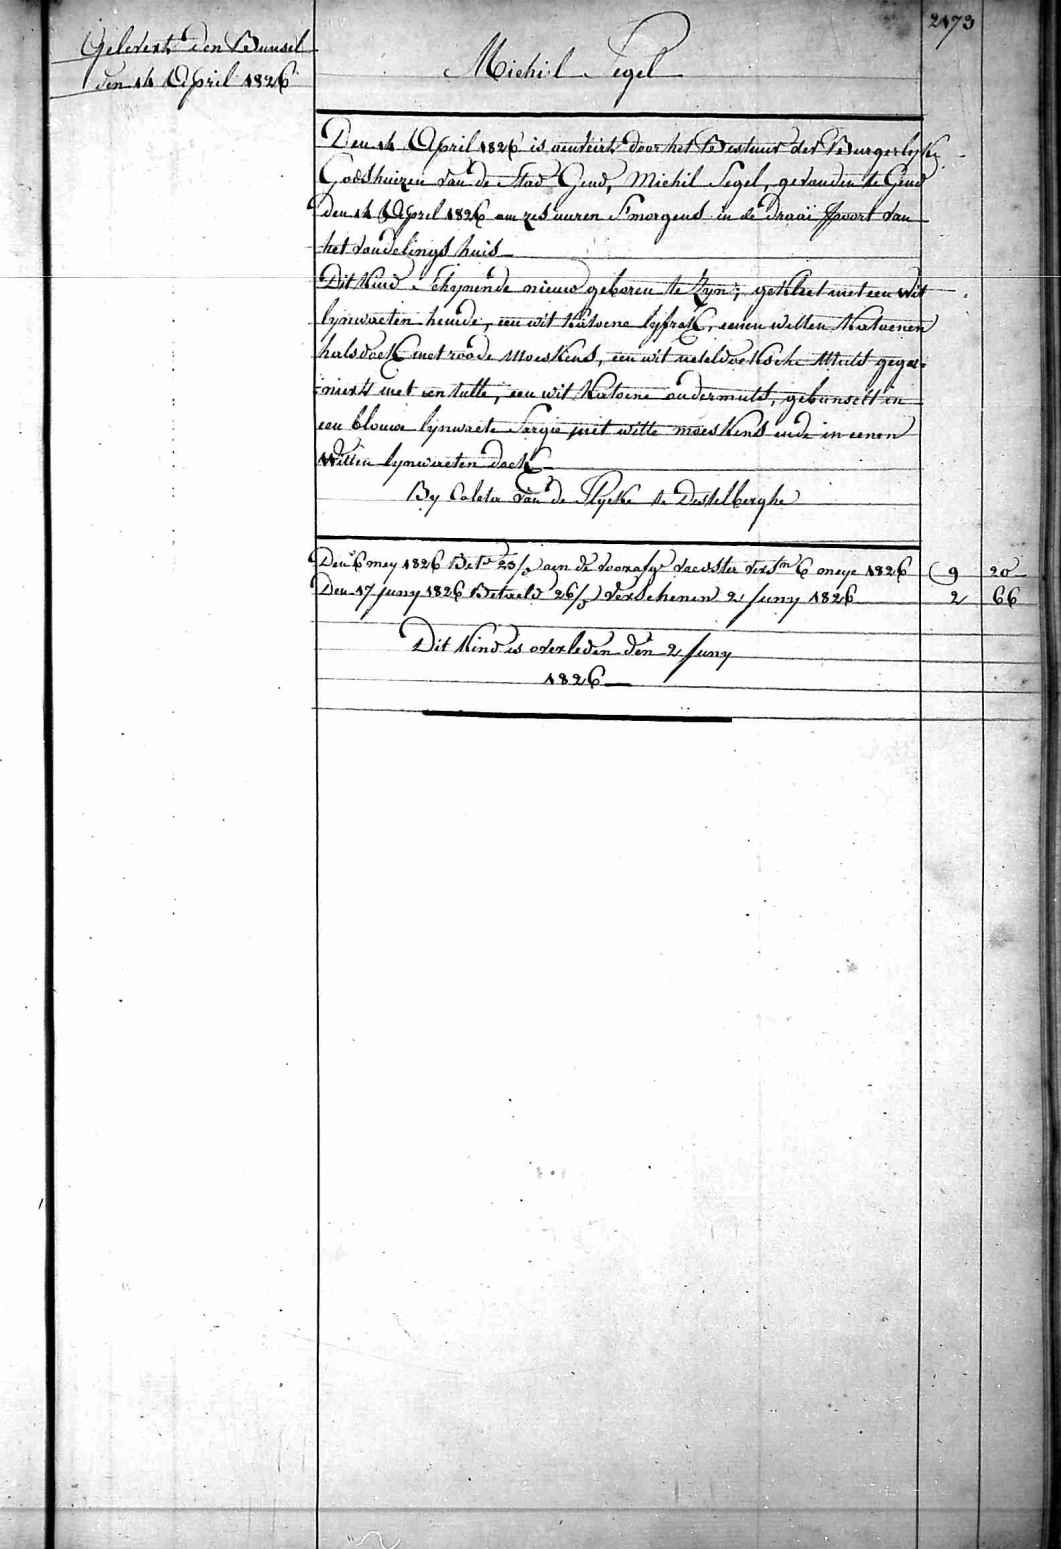 2173
Gelevert den Bunsel
den 14 April 1826
Michil Segel
Den 14 April 1826 is aenveirt door het Bestuur der Burgerlyke
Godshuizen van de Stad Gend, Michil Segel, gevonden te Gend
den 14 April 1826 om zes uuren S'morgens in de Draaï Poort van
het vondelings huis
Dit Kind Schynende nieuw geboren te Zyn; gekleet met een wit
lynwaeten hemde, een wit Katoene lyfrok, eenen witten Katoenen
halsdoek met roode Moeskens, een wit neteldoeksche Muts gegar-
nierts met een tulle, een wit Katoene ondermuts, gebunselt in
een blouwe lynwaete Sargie met witte moeskens ende in eenen
Witten lynwaeten doek
By Coleta van de Plycke te Destelberghe
Den 6 mey 1826 Bet. 23/ aen de voedster vers. 6 meye 1826 9 20
Den 17 Juny 1826 Betaeld 26/ Verschenen 2 Juny 1826 2 66
Dit Kind is overleden den 2 Juny
1826